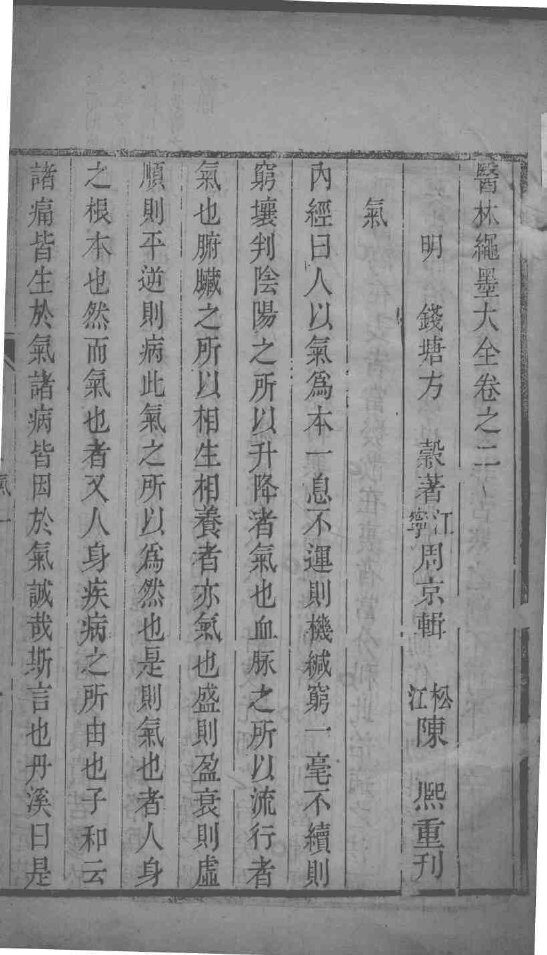 醫林繩墨大全卷之二
明 錢塘方 穀著 江寧周京輯 松江陳 熈重刊
氣
內經曰人以氣爲本一息不運則機緘窮一毫不續則
窮壤判陰陽之所以升降者氣也血脉之所以流行者
氣也腑臟之所以相生相養者亦氣也盛則盈衰則虛
順則平逆則病此氣之所以爲然也是則氣也者人身
之根本也然而氣也者又人身疾病之所由也子和云
諸痛皆生於氣諸病皆因於氣誠哉斯言也丹溪曰是
氣 一